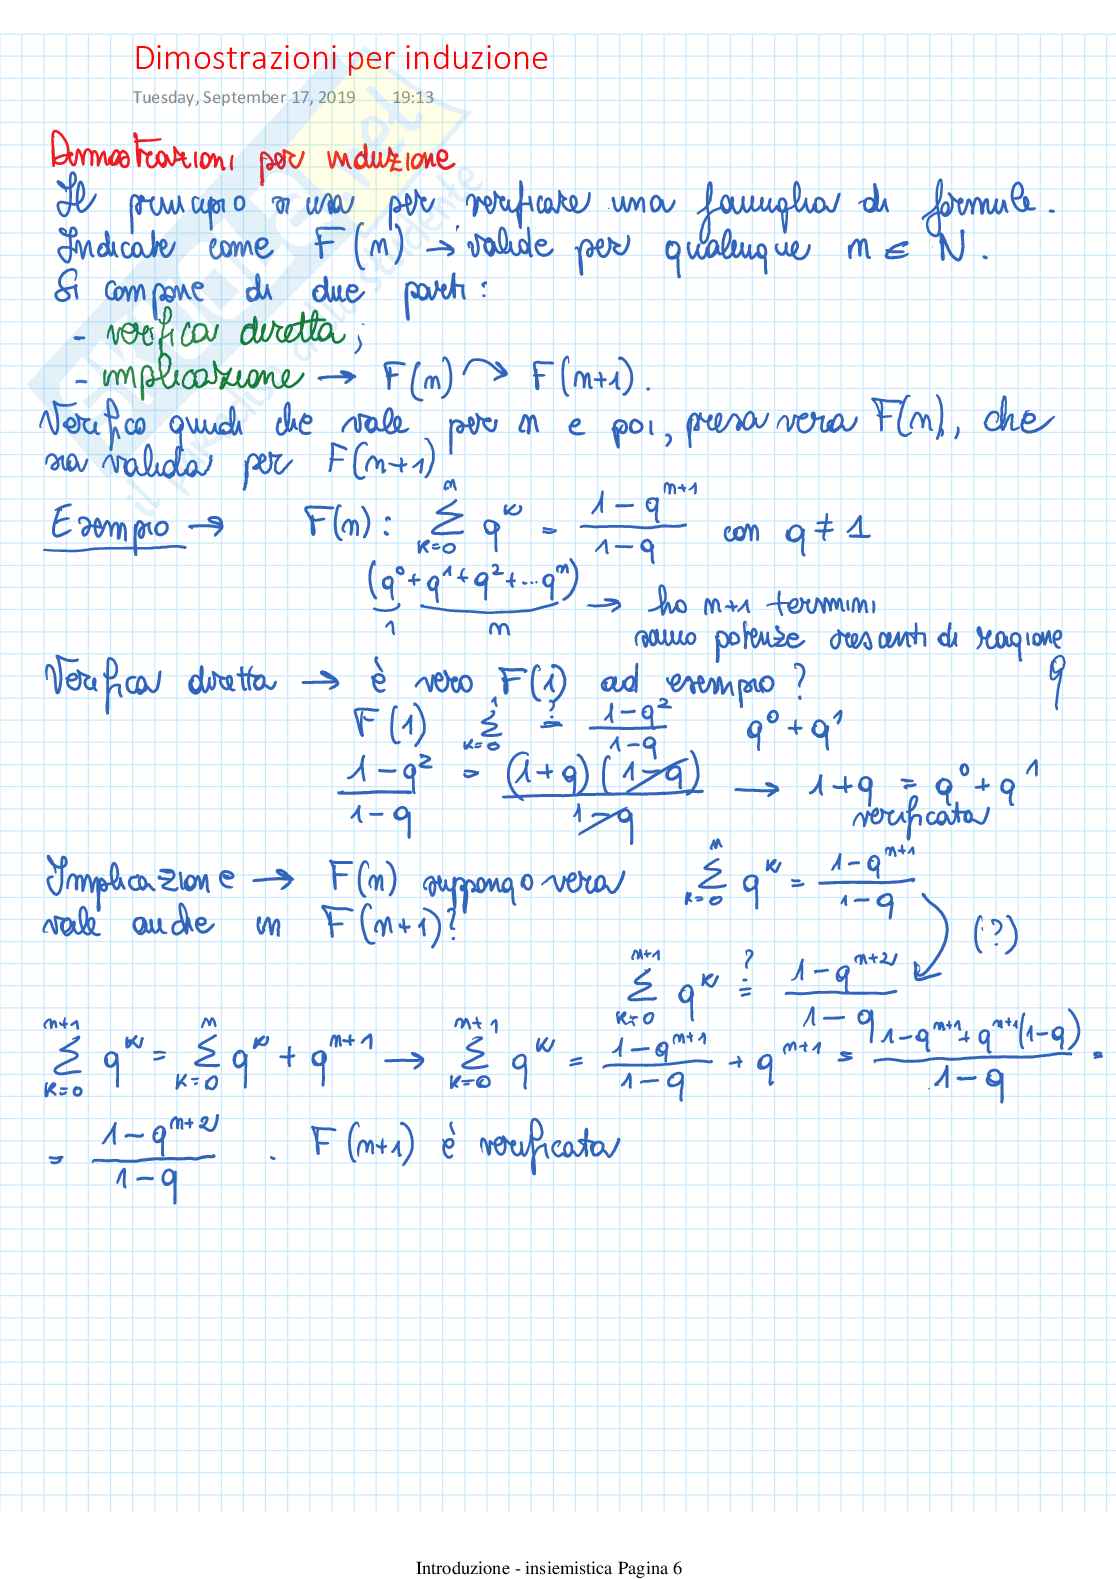 Dimostrazioni per induzione
Tuesday, September 17, 2019 19:13
Dimostrazioni per induzione
Il principio si usa per verificare una famiglia di formule.
Indicate come F(n) → valide per qualunque n ∈ N.
Si compone di due parti:
- verifica diretta;
- implicazione → F(n) ↷ F(n+1).
Verifico quindi che vale per n e poi, presa vera F(n), che
sia valida per F(n+1)
Esempio → F(n): Σ_{k=0}^{n} q^k = (1-q^{n+1})/(1-q) con q ≠ 1
(q^0 + q^1 + q^2 + ... q^n) → ho n+1 termini
1 n siano potenze crescenti di ragione q
Verifica diretta → è vero F(1) ad esempio?
F(1) Σ_{k=0}^{1} ≟ (1-q^2)/(1-q) q^0 + q^1
(1-q^2)/(1-q) = (1+q)(1-q)/(1-q) → 1+q = q^0 + q^1
verificata
Implicazione → F(n) suppongo vera Σ_{k=0}^{n} q^k = (1-q^{n+1})/(1-q)
vale anche in F(n+1)? (?)
Σ_{k=0}^{n+1} q^k ≟ (1-q^{n+2})/(1-q)
Σ_{k=0}^{n+1} q^k = Σ_{k=0}^{n} q^k + q^{n+1} → Σ_{k=0}^{n+1} q^k = (1-q^{n+1})/(1-q) + q^{n+1} = (1-q^{n+1}+q^{n+1}(1-q))/(1-q) =
= (1-q^{n+2})/(1-q) . F(n+1) è verificata
Introduzione - insiemistica Pagina 6